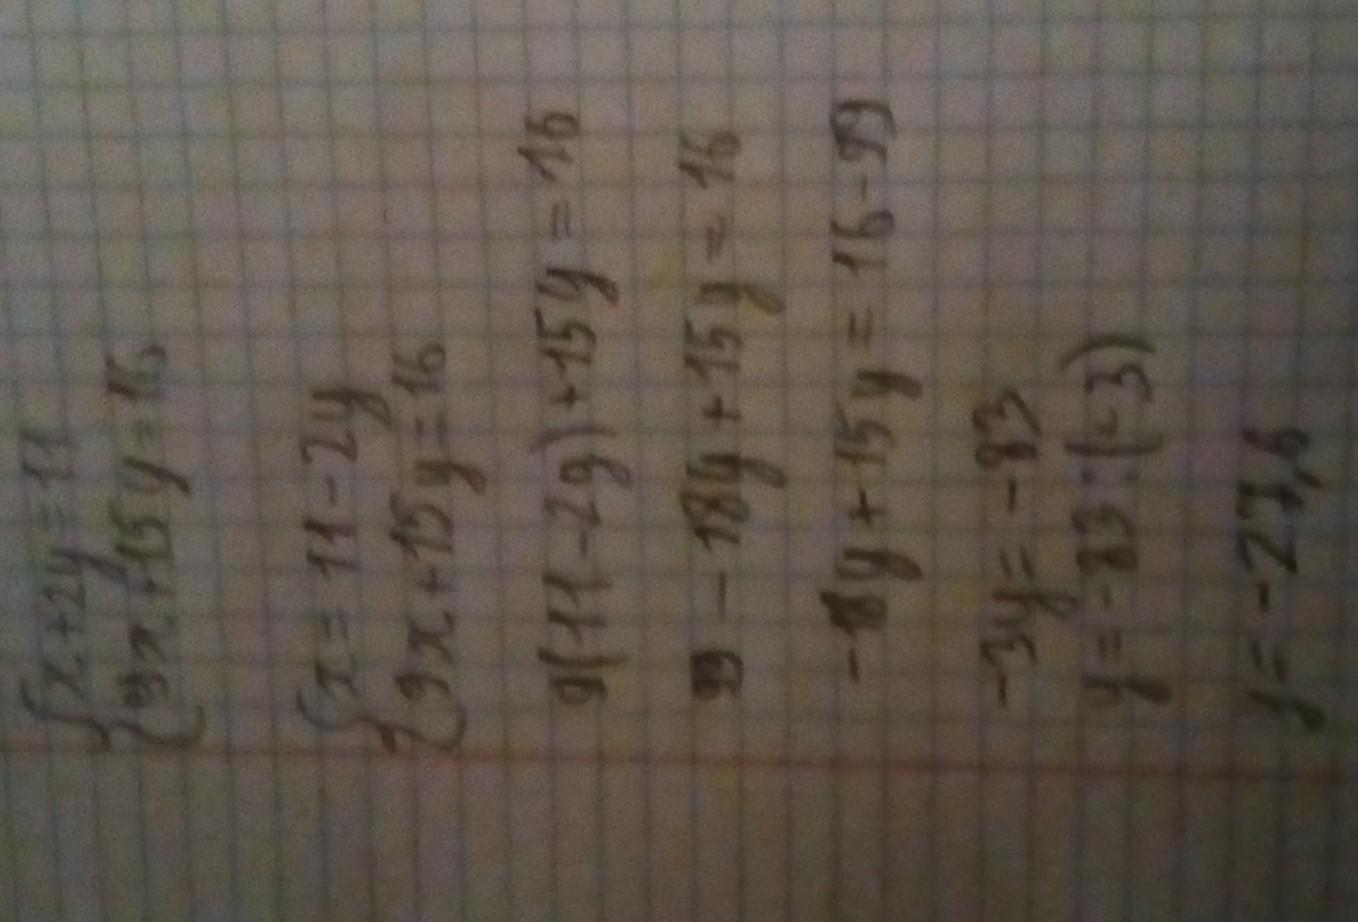 {x+2y=11
{9x+15y=16
{x=11-2y
{9x+15y=16
9(11-2y)+15y=16
99-18y+15y=16
-18y+15y=16-99
-3y=-83
y=-83:(-3)
y=-27,6